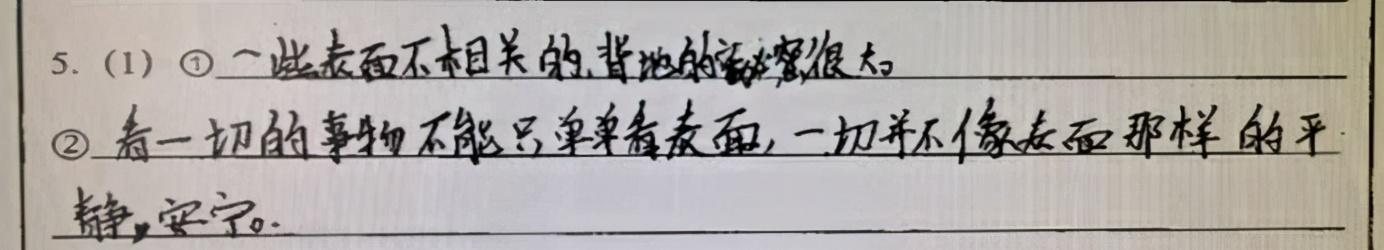 5. (1) ① 一些表面不相关的,背地的秘密很大。
② 看一切的事物不能只单单看表面,一切并不像表面那样的平
静,安宁。